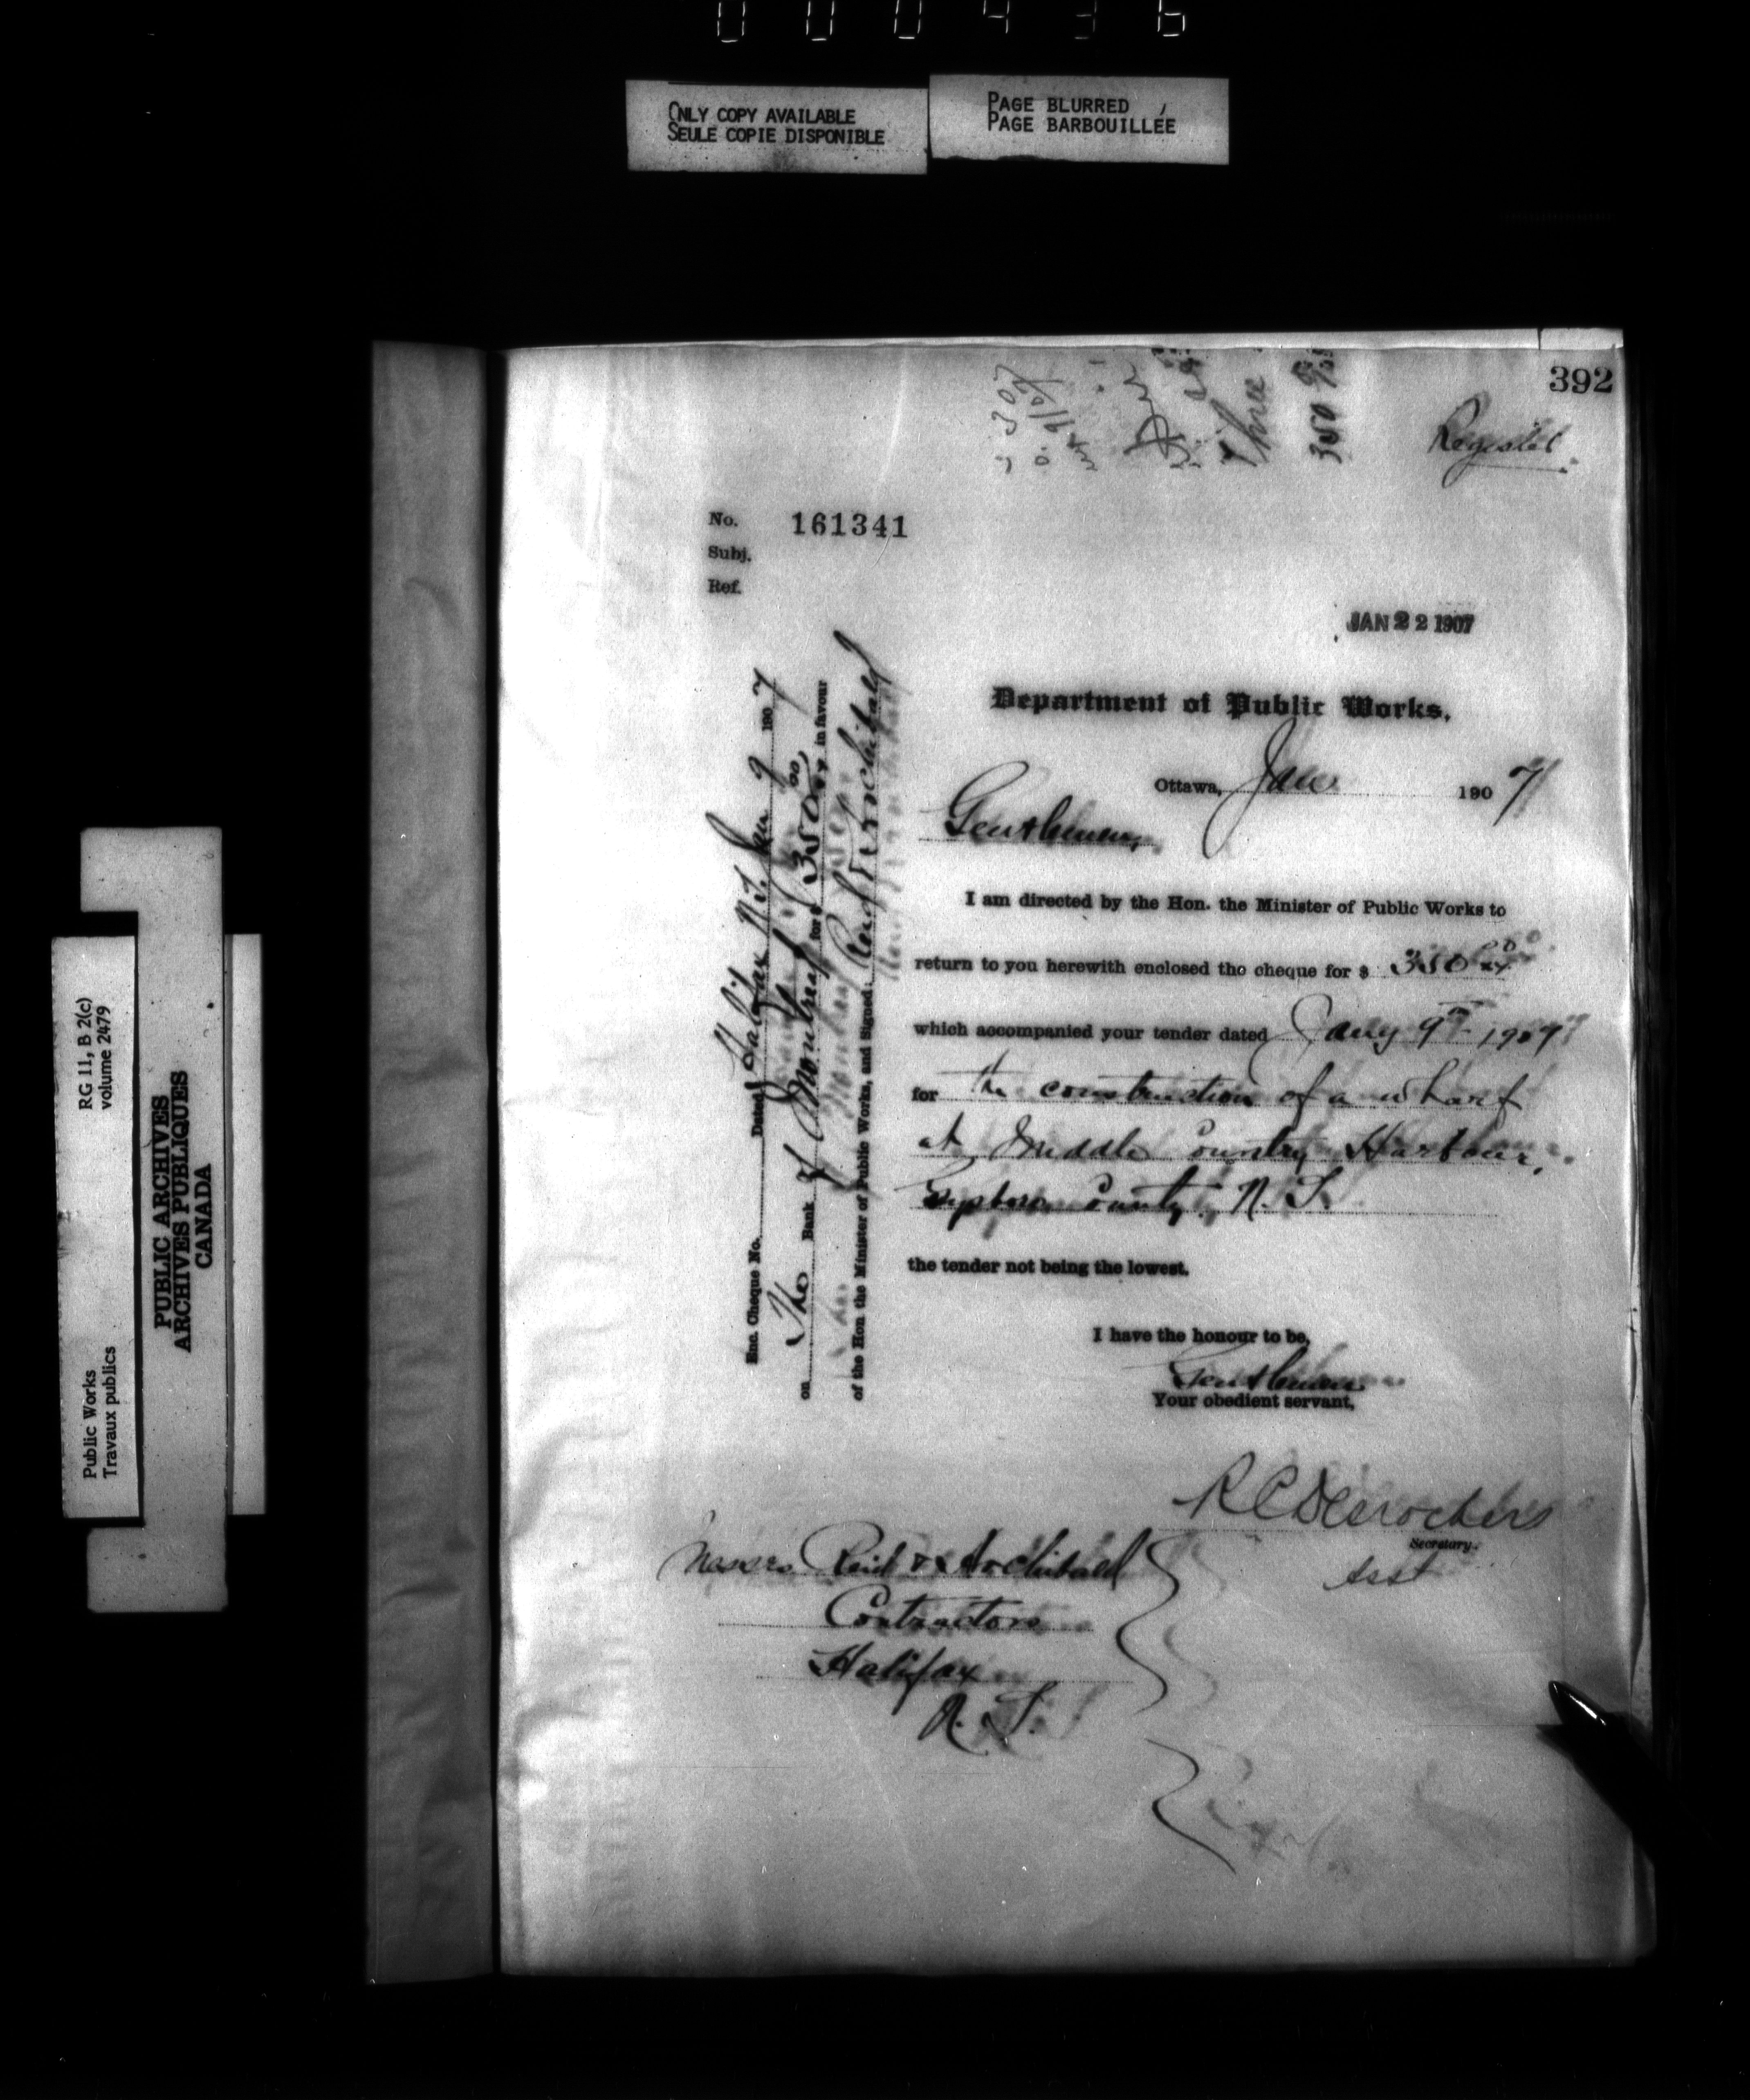 000436
ONLY COPY AVAILABLE
SEULE COPIE DISPONIBLE
PAGE BLURRED
PAGE BARBOUILLÉE
RG 11, B 2(c)
volume 2479
Public Works
Travaux publics
PUBLIC ARCHIVES
ARCHIVES PUBLIQUES
CANADA
392
Three
350
No. 161341
Subj.
Ref.
JAN 22 1907
Department of Public Works.
Ottawa, Jan 1907
Gentlemen,
I am directed by the Hon. the Minister of Public Works to
return to you herewith enclosed the cheque for $ 350 00/xx
which accompanied your tender dated Jany 9th 1907
for the construction of a wharf
at Middle Country Harbour,
Guysboro County N. S.
the tender not being the lowest.
I have the honour to be,
Gentlemen
Your obedient servant,
R C Desrochers
Secretary.
Asst
Messrs Reid & Archibald
Contractors
Halifax
N. S.
Enc. Cheque No. Dated Halifax N.S. Jan 9 1907
on The Bank of Montreal for $ 350 00/xx in favour
of the Hon the Minister of Public Works, and Signed: Reid & Archibald